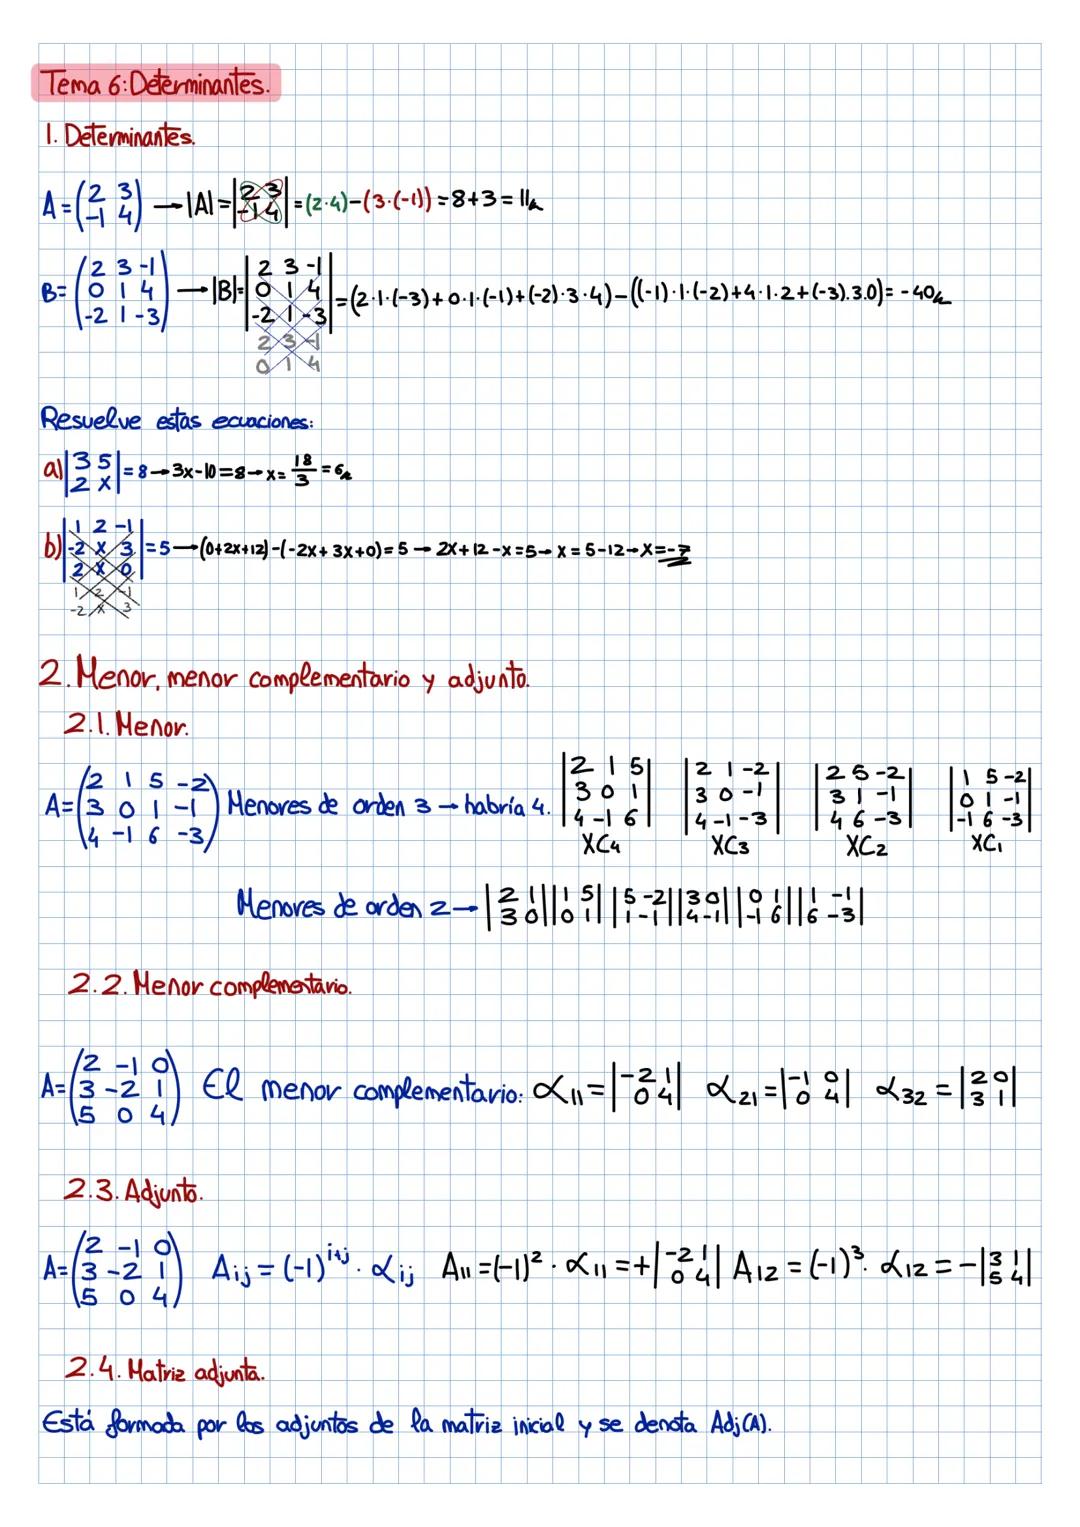 Tema 6: Determinantes.
1. Determinantes.
A = (2 3 / -1 4) → |A| = |2 3 / -1 4| = (2·4)-(3·(-1)) = 8+3 = 11
B = (2 3 -1 / 0 1 4 / -2 1 -3) → |B| = |2 3 -1 / 0 1 4 / -2 1 -3| = (2·1·(-3)+0·1·(-1)+(-2)·3·4)-((-1)·1·(-2)+4·1·2+(-3).3.0) = -40
2 3 -1
0 1 4
Resuelve estas ecuaciones:
a) |3 5 / 2 x| = 8 → 3x-10=8 → x= 18/3 = 6
b) |1 2 -1 / -2 x 3 / 2 x 0| = 5 → (0+2x+12)-(-2x+3x+0)=5 → 2x+12-x=5 → x=5-12 → x=-7
1 2 -1
-2 x 3
2. Menor, menor complementario y adjunto.
2.1. Menor.
A = (2 1 5 -2 / 3 0 1 -1 / 4 -1 6 -3) Menores de orden 3 → habría 4. |2 1 5 / 3 0 1 / 4 -1 6| |2 1 -2 / 3 0 -1 / 4 -1 -3| |2 5 -2 / 3 1 -1 / 4 6 -3| |1 5 -2 / 0 1 -1 / -1 6 -3|
XC4 XC3 XC2 XC1
Menores de orden 2 → |2 1 / 3 0| |1 5 / 0 1| |5 -2 / 1 -1| |3 0 / 4 -1| |0 1 / -1 6| |1 -1 / 6 -3|
2.2. Menor complementario.
A = (2 -1 0 / 3 -2 1 / 5 0 4) El menor complementario: α11 = |-2 1 / 0 4| α21 = |-1 0 / 0 4| α32 = |2 0 / 3 1|
2.3. Adjunto.
A = (2 -1 0 / 3 -2 1 / 5 0 4) Aij = (-1)^i+j · αij A11 = (-1)² · α11 = + |-2 1 / 0 4| A12 = (-1)³ · α12 = - |3 1 / 5 4|
2.4. Matriz adjunta.
Está formada por los adjuntos de la matriz inicial y se denota Adj(A).